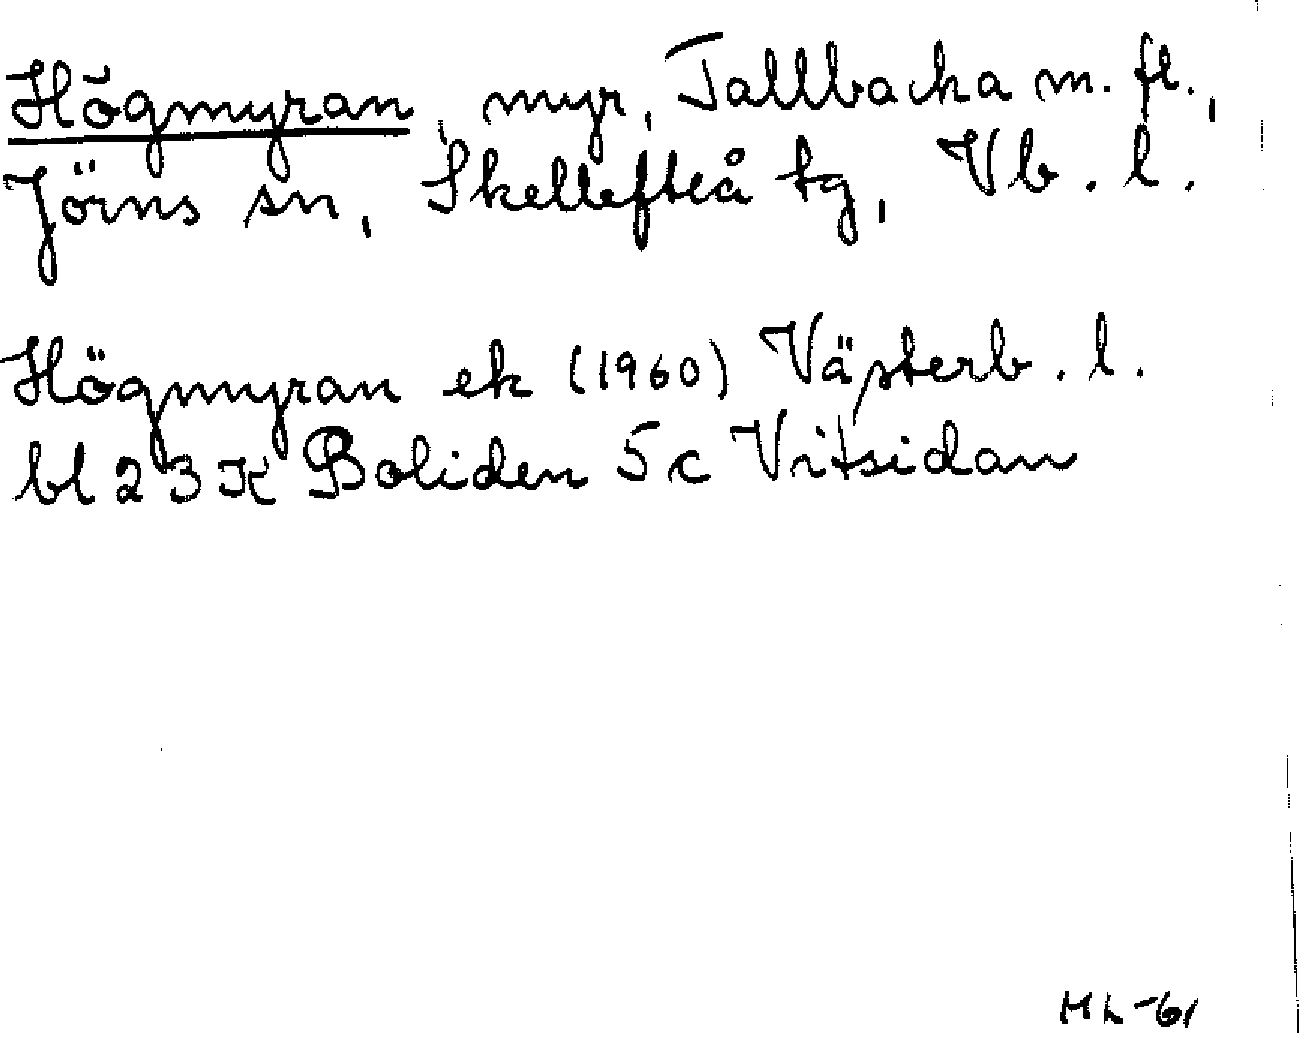 Högmyran, myr, Tallbacka m. fl.,
Jörns sn, Skellefteå tg, Vb. l.
Högmyran ek (1960) Västerb. l.
bl 23 K Boliden 5c Vitsidan
ML-61